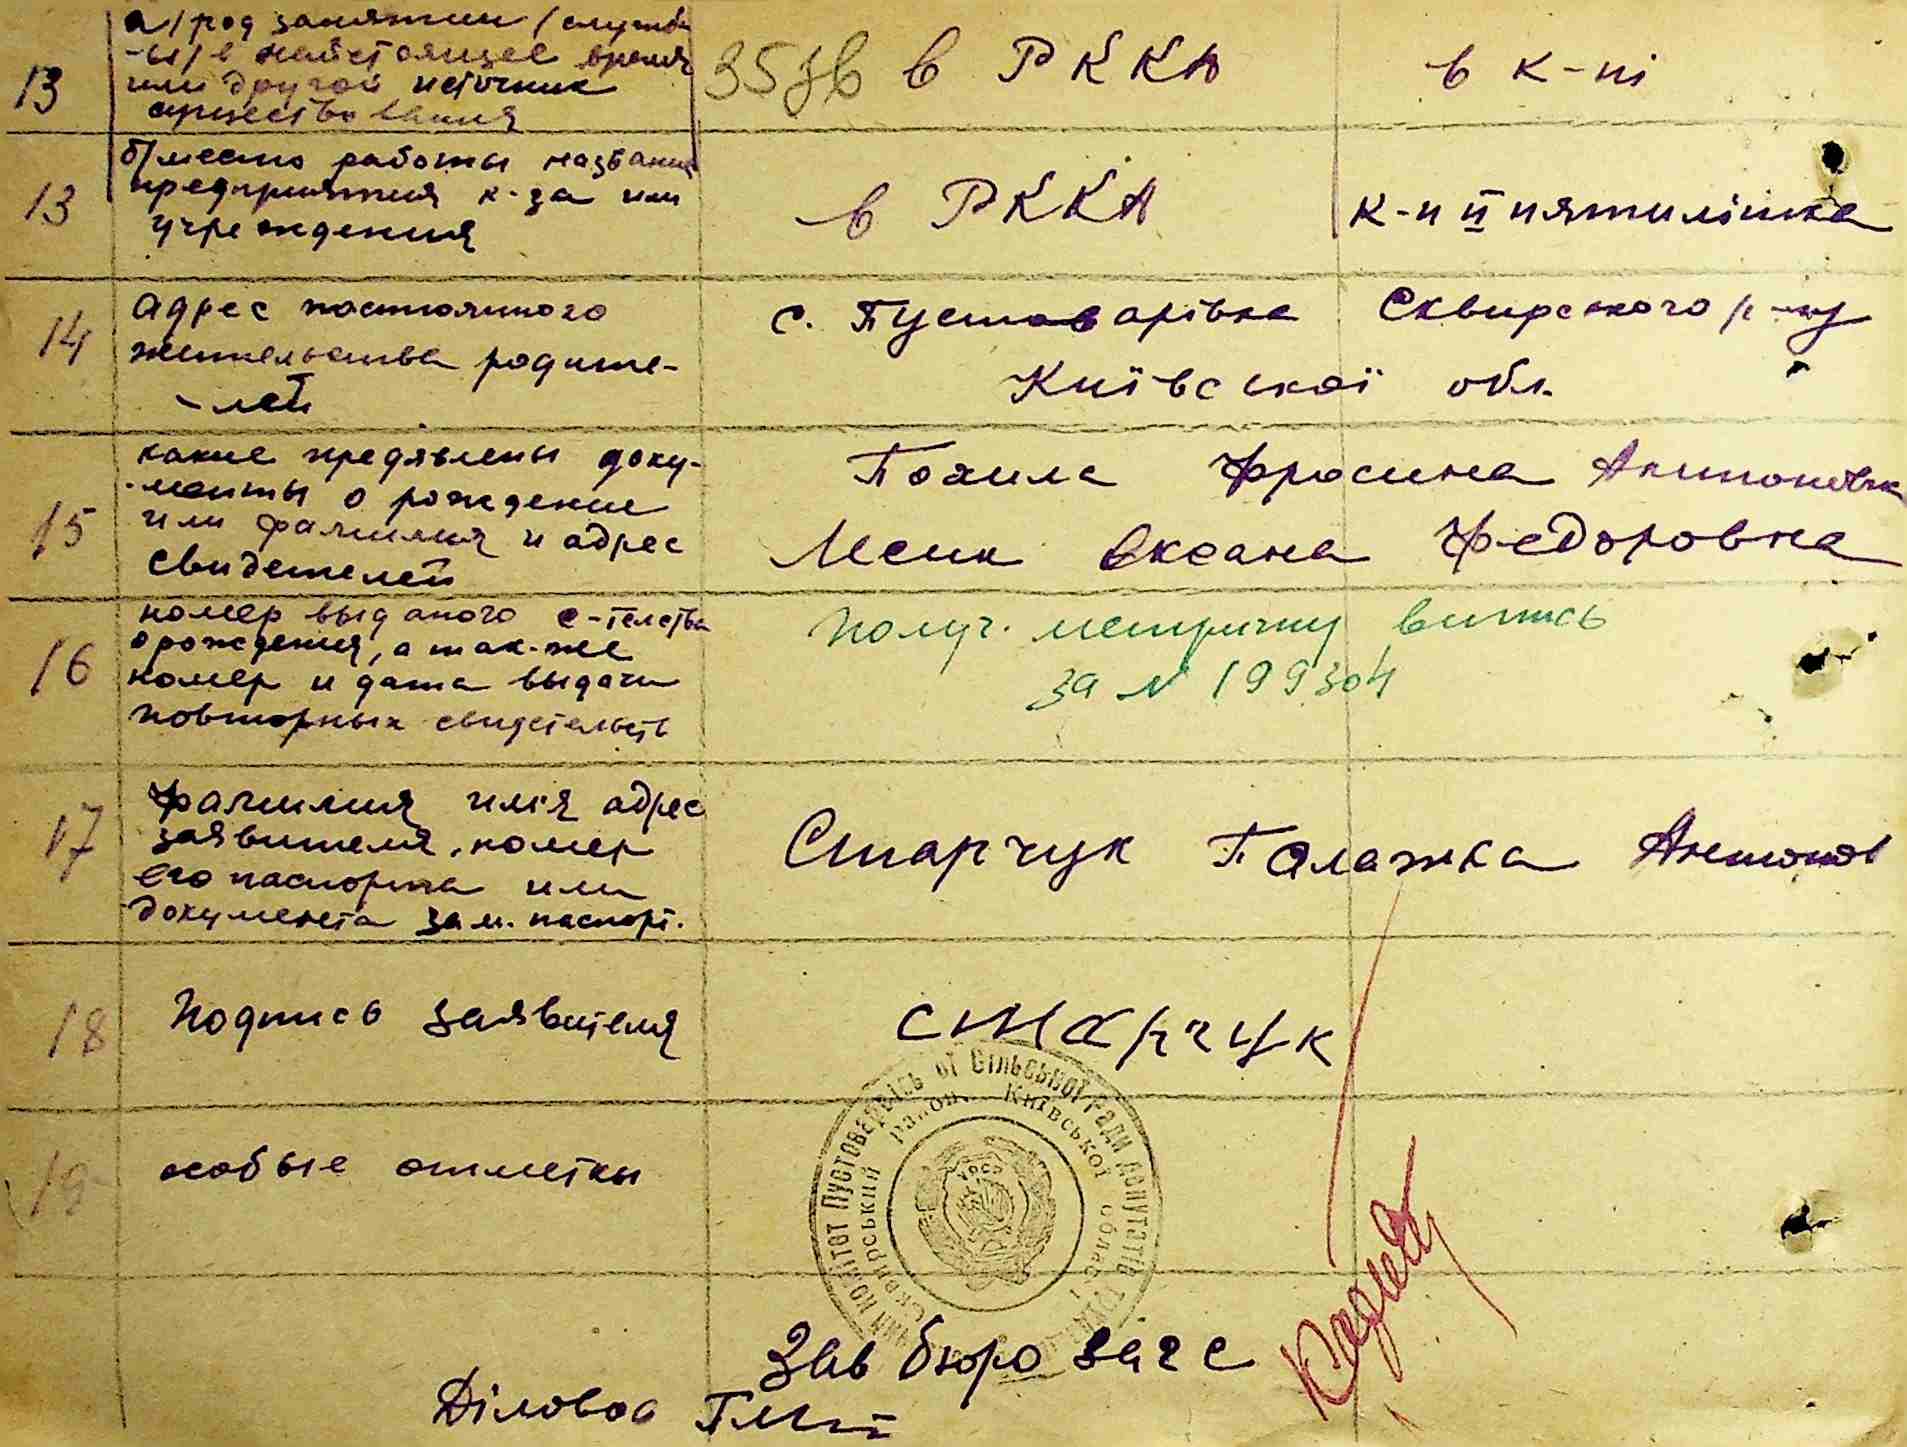 13 а/ род занятии / служб
-ы/ в настоящее время
или другой источник
существования
35 зв в РККА в к-пі
13 б/ место работы название
предприятия к-за или
учреждения
в РККА к-п II пятилітка
14 адрес постоянного
жительства родите-
-лей
с. Пустоварівка Сквирського р-ну
Київської обл.
15 какие предявлены доку-
-менты о рождение
или фамилия и адрес
свидетелей
Похила Фросина
Месик Оксана Федоровна
16 номер выданого с-телства
о рождения, а так-же
номер и дата выдачи
повторных свидетельств
получ. метричну випись
за N 199304
17 фамилия имя адрес
заявителя, номер
его паспорта или
документа зам. паспорт.
Старчук Палажка Антонов
18 Подпись заявителя
старчук
19 особые отметки
Пустоверівсь ої Сільської Ради депутатів
Сквирський район Київської області
УРСР
Зав бюро загс
Діловод